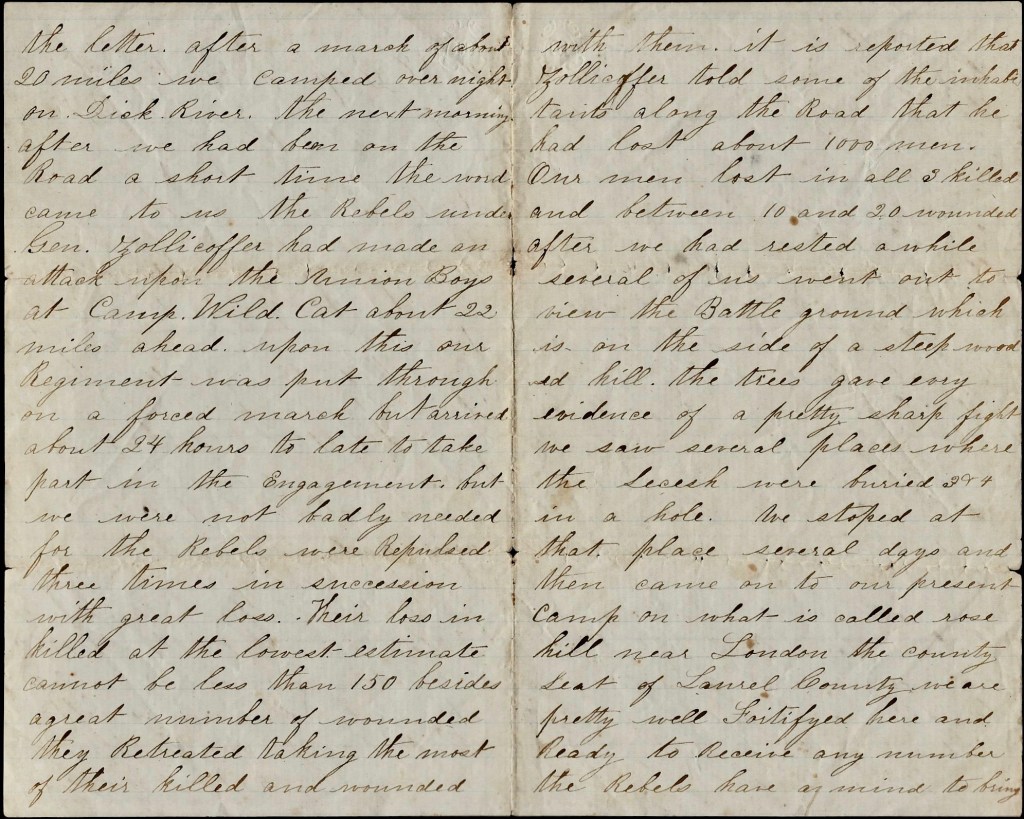 the letter. after a march of about
20 miles we camped over night
on. Dick. River. the next morning
after we had been on the
Road a short time the word
came to us the Rebels under
Gen. Zollicoffer had made an
attack upon the Union Boys
at Camp. Wild. Cat about 22
miles ahead. upon this our
Regiment was put through
on a forced march but arrived
about 24 hours to late to take
part in the Engagement. but
we were not badly needed
for the Rebels were Repulsed
three times in succession
with great loss. Their loss in
killed at the lowest estimate
cannot be less than 150 besides
a great number of wounded
they Retreated taking the most
of their killed and wounded
with them. it is reported that
Zollicoffer told some of the inhabi
tants along the Road that he
had lost about 1000 men.
Our men lost in all 3 killed
and between 10 and 20 wounded
after we had rested a while
several of us went out to
view the Battle ground which
is on the side of a steep wood
ed hill. the trees gave evry
evidence of a pretty sharp fight
we saw several places where
the Secesh were buried 3 & 4
in a hole. We stoped at
that place several days and
then came on to our present
Camp on what is called rose
hill near London the county
Seat of Laurel County we are
pretty well Fortifyed here and
Ready to Receive any number
the Rebels have a mind to bring